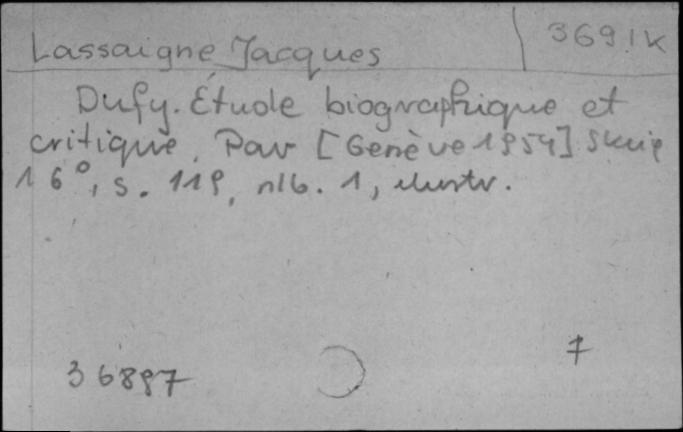 Lassaigne Jacques 3691K
Dufy. Étude biographique et
critique. Par [Genève 1954] Skira
16°, s. 119, nlb. 1, ilustr.
7
36897